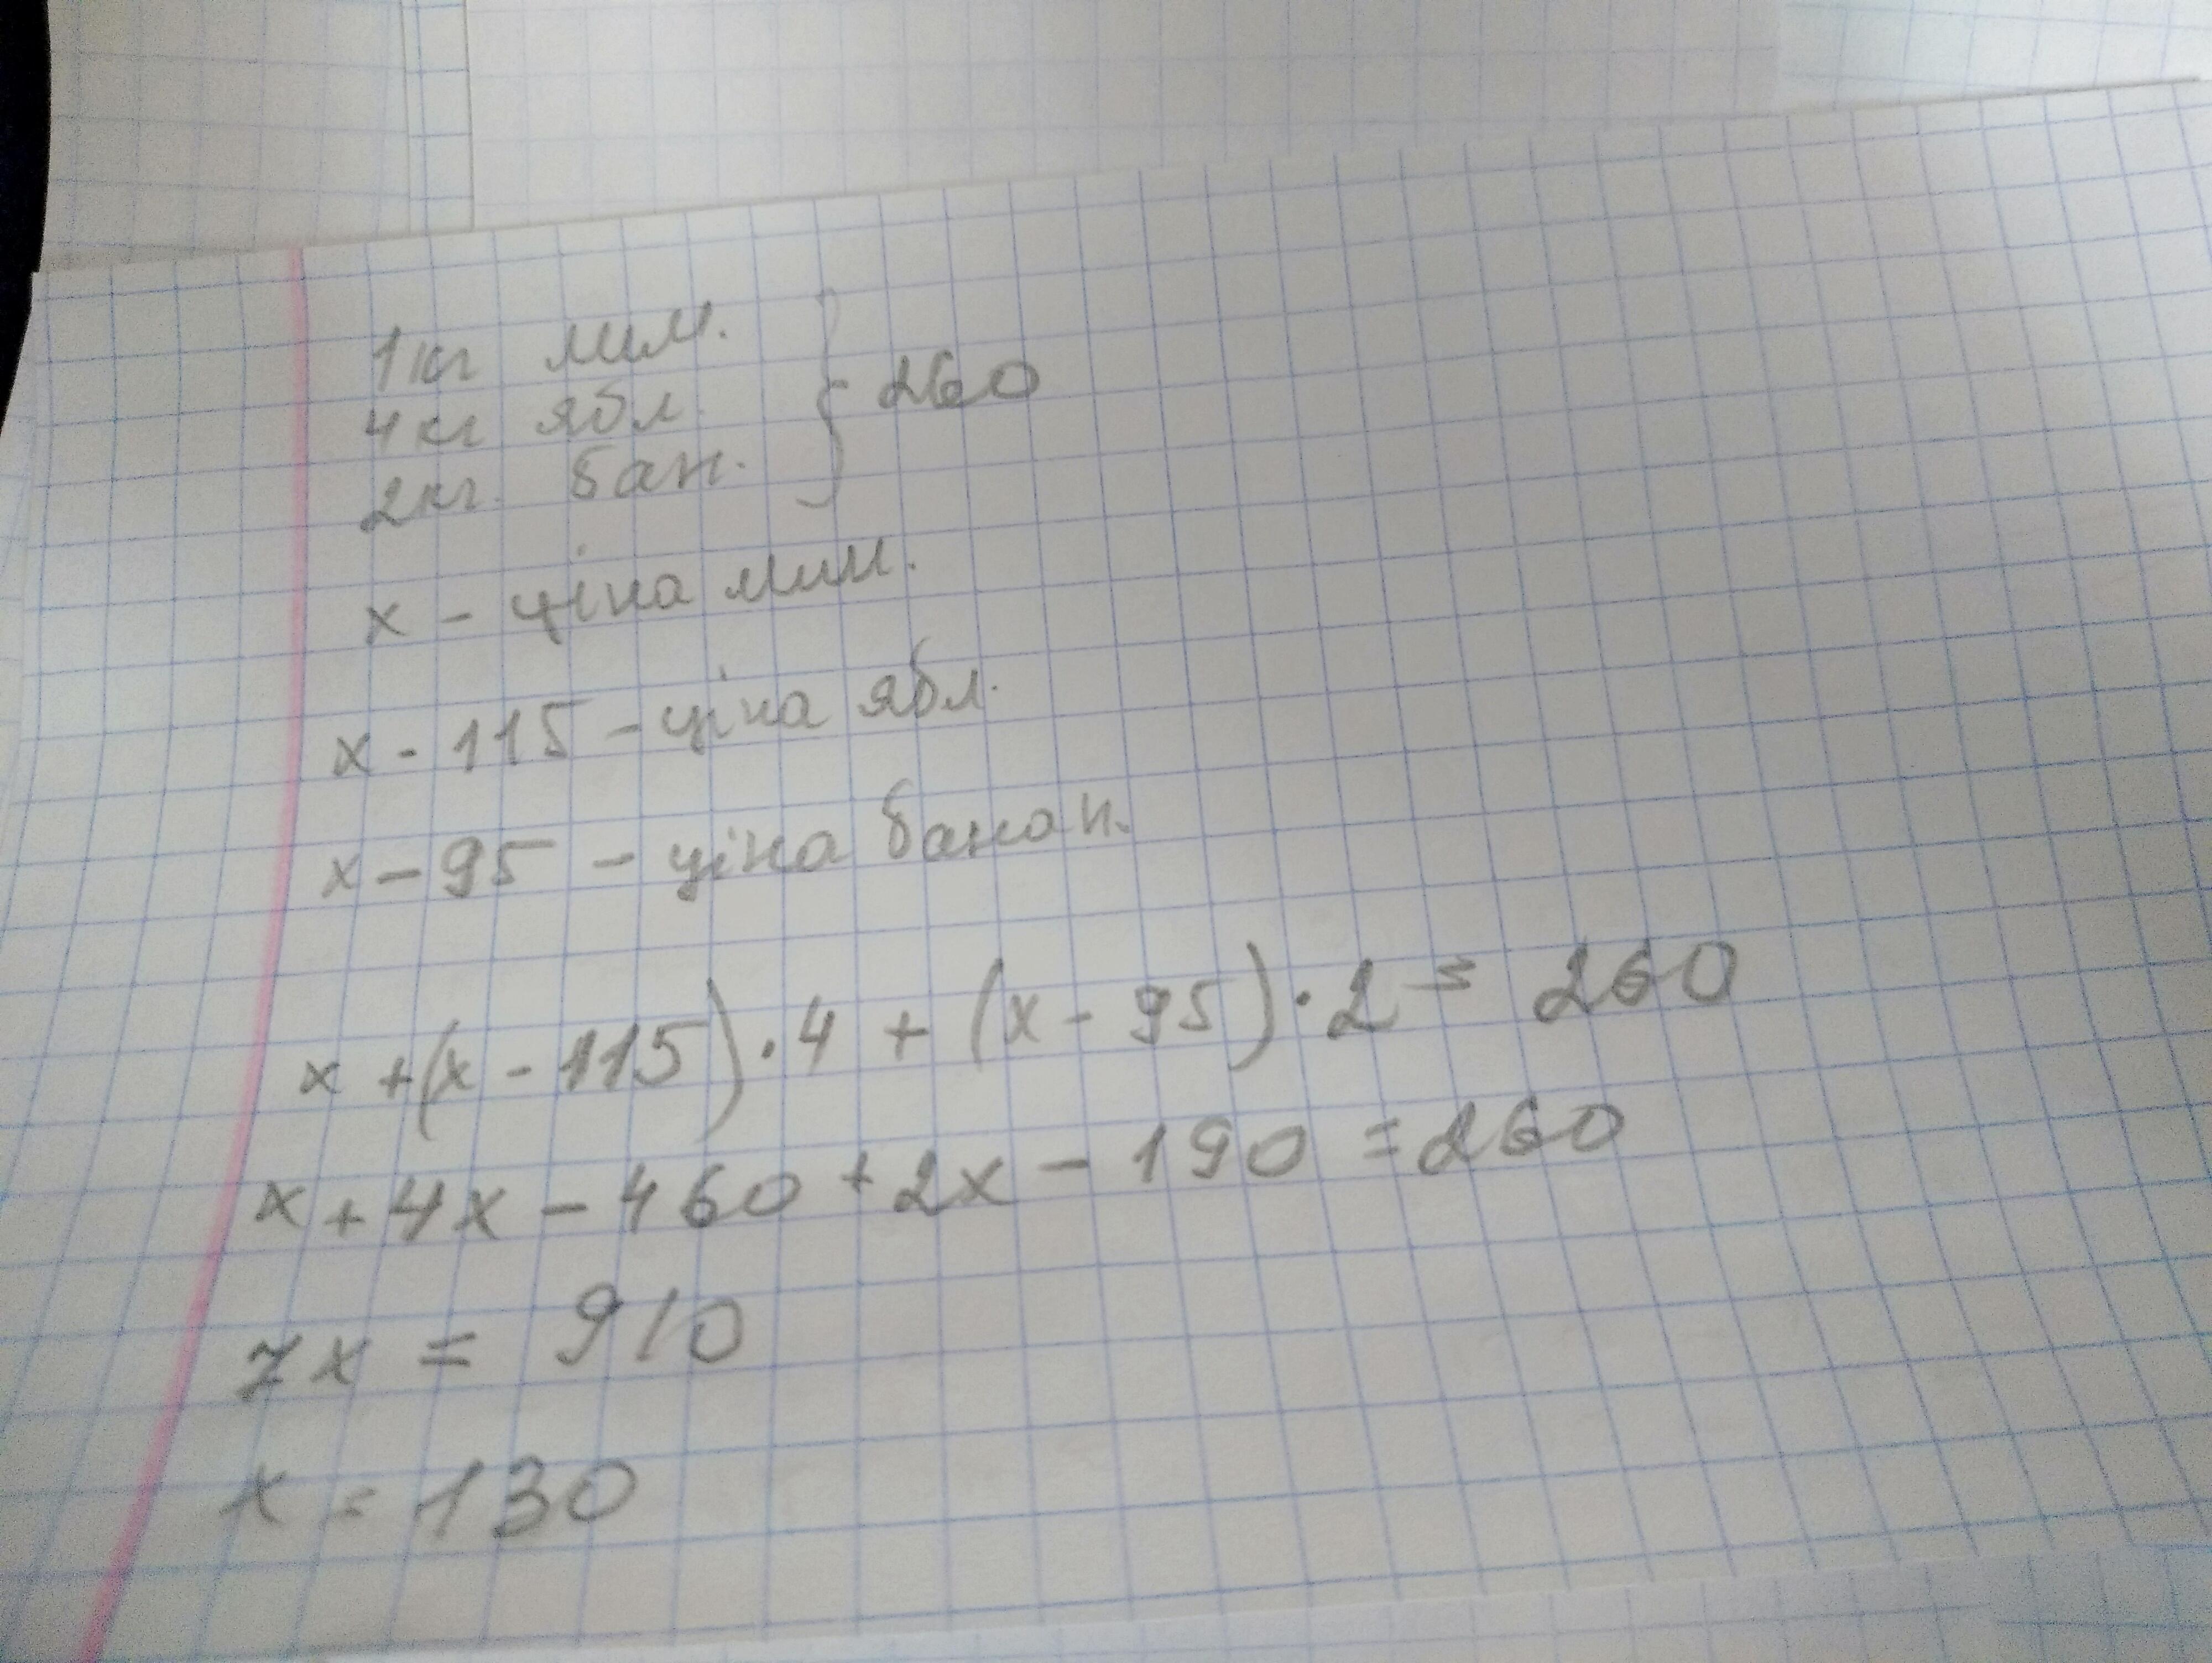 1кг лим.
4кг ябл.
2кг. бан.
} 260
x - ціна лим.
x - 115 - ціна ябл.
x - 95 - ціна банан.
x + (x - 115) · 4 + (x - 95) · 2 = 260
x + 4x - 460 + 2x - 190 = 260
7x = 910
x = 130